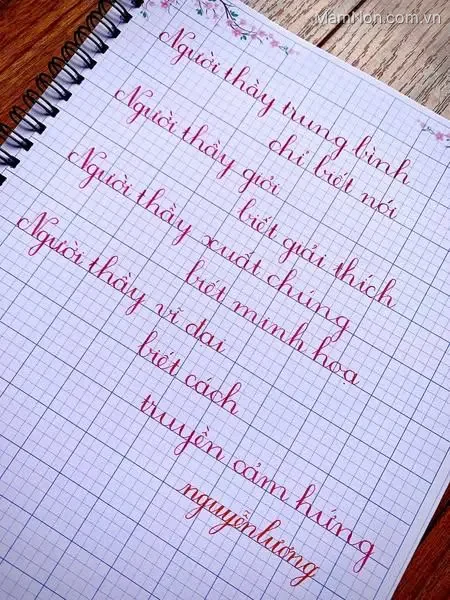 MamNon.com.vn
Người thầy trung bình
chỉ biết nói
Người thầy giỏi
biết giải thích
Người thầy xuất chúng
biết minh hoạ
Người thầy vĩ đại
biết cách
truyền cảm hứng
nguyễnlương